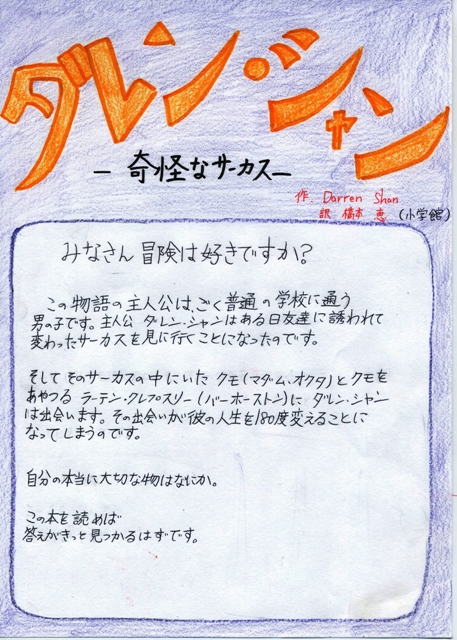 ダレン・シャン
ー奇怪なサーカスー
作 Darren Shan
訳 橋本 恵 (小学館)
みなさん冒険は好きですか?
この物語の主人公は、ごく普通の学校に通う
男の子です。主人公 ダレン・シャンはある日友達に誘われて
変わったサーカスを見に行くことになったのです。
そして そのサーカスの中にいた クモ(マダム・オクタ)とクモを
あやつる ラーテン・クレプスリー(バーホーストン)に ダレン・シャン
は出会います。その出会いが彼の人生を180度変えることに
なってしまうのです。
自分の本当に大切な物はなにか。
この本を読めば
答えがきっと見つかるはずです。